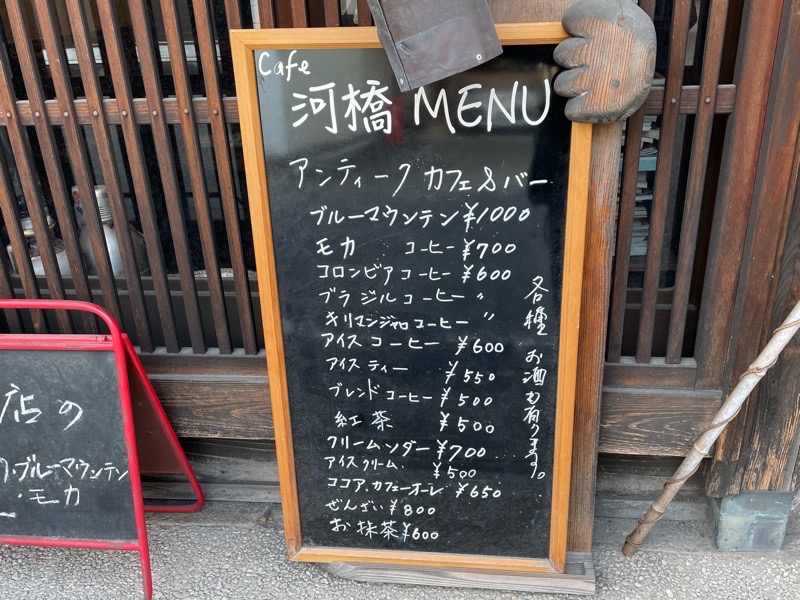 Cafe
河橋 MENU
アンティーク カフェ&バー
ブルーマウンテン ¥1000
モカ コーヒー ¥700
コロンビア コーヒー ¥600
ブラジルコーヒー 〃
キリマンジャロコーヒー 〃
アイス コーヒー ¥600
アイス ティー ¥550
ブレンド コーヒー ¥500
紅茶 ¥500
クリームソダー ¥700
アイスクリーム ¥500
ココア、カフェーオーレ ¥650
ぜんざい ¥800
お抹茶 ¥600
各種 お酒も有ります。
店の
・ブルーマウンテン
・モカ